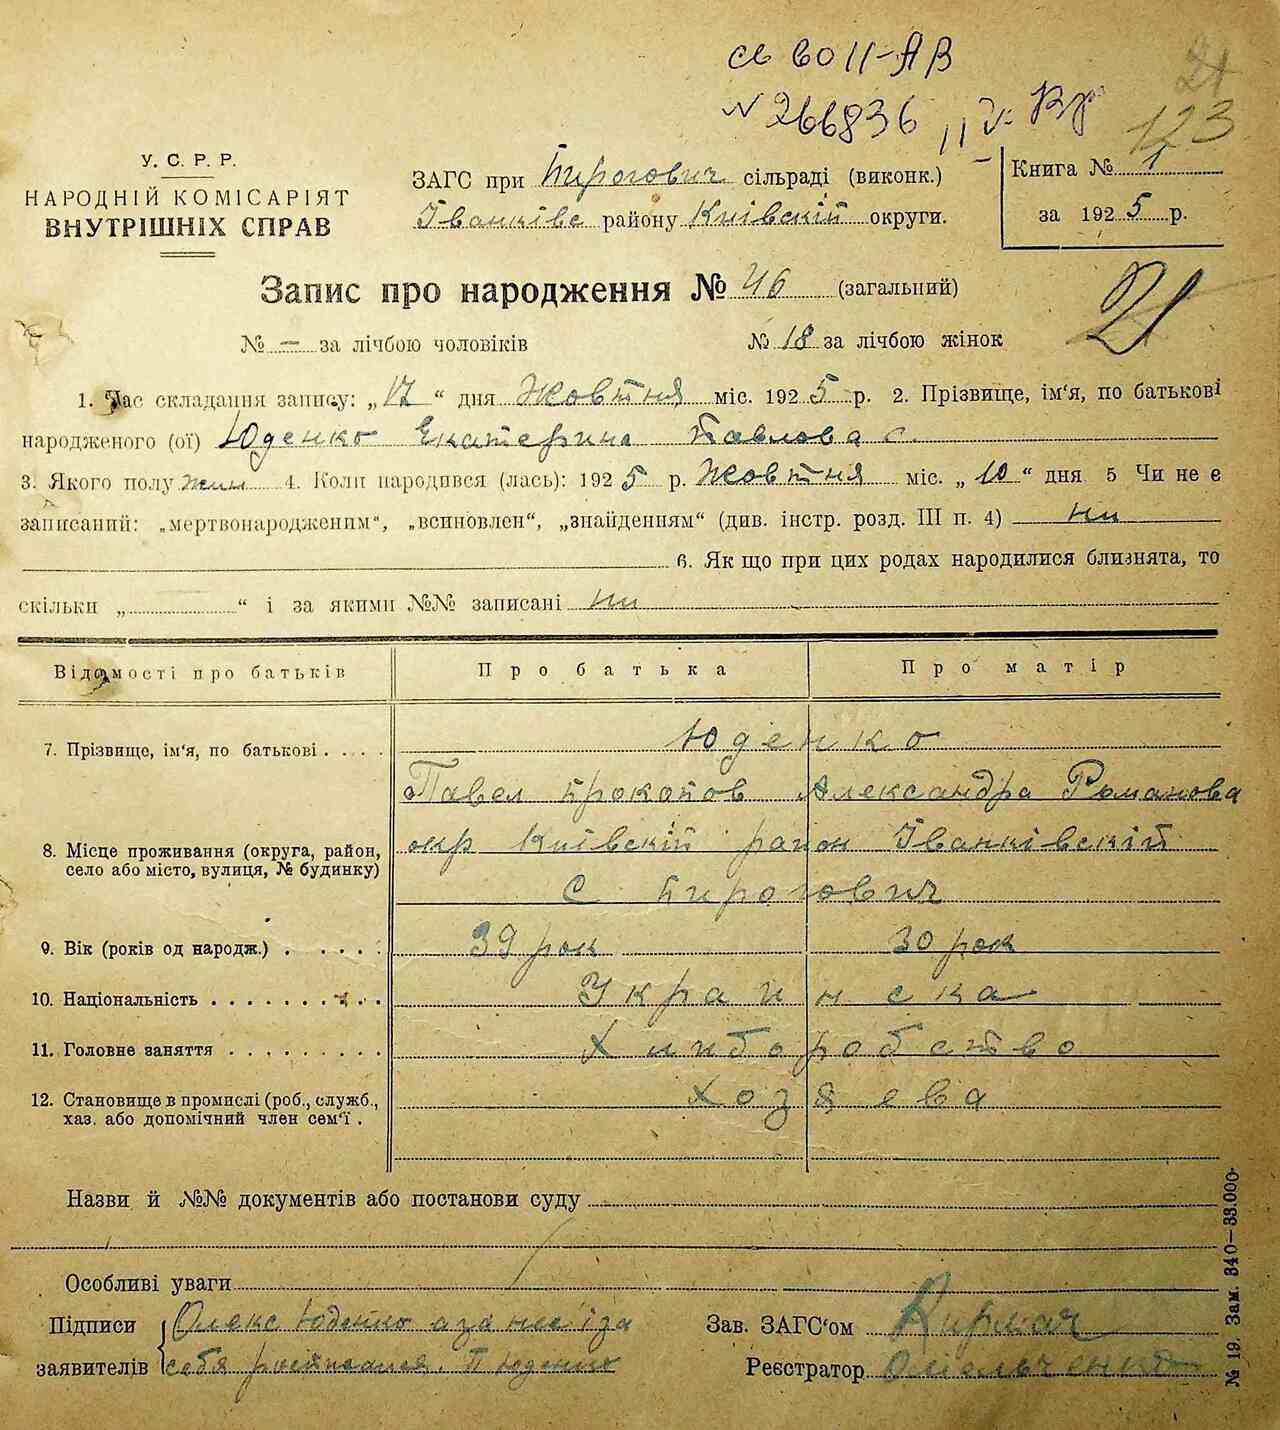 св во II-АВ
№ 266836
21
123
У. С. Р. Р.
НАРОДНІЙ КОМІСАРІЯТ
ВНУТРІШНІХ СПРАВ
ЗАГС при Пирогович сільраді (виконк.)
Іванківс району Київскій округи.
Книга № 1
за 1925 р.
Запис про народження № 46 (загальний)
21
№ — за лічбою чоловіків № 18 за лічбою жінок
1. Час складання запису: „17“ дня Жовтня міс. 1925 р. 2. Прізвище, ім'я, по батькові
народженого (ої) Юденко Екатерина Павлова
3. Якого полу жин 4. Коли народився (лась): 1925 р. Жовтня міс. „10“ дня 5 Чи не є
записаний: „мертвонародженим“, „всиновлен“, „знайденням“ (див. інстр. розд. III п. 4) ни
6. Як що при цих родах народилися близнята, то
скільки „ “ і за якими №№ записані ни
Відомості про батьків Про батька Про матір
7. Прізвище, ім'я, по батькові . . . . Юденко
Павел Прокопов Александра Романова
8. Місце проживання (округа, район, село або місто, вулиця, № будинку) окр Київскій район Іванківскій
с Пирогович
9. Вік (років од народж.) . . . . . 39 рок 30 рок
10. Національність . . . . . . . . . Украинска
11. Головне заняття . . . . . . . . . Хлиборобство
12. Становище в промислі (роб., служб., хаз. або допомічний член сем'ї . Хозяева
Назви й №№ документів або постанови суду
Особливі уваги
Підписи заявителів Олекс Юденко а за нее і за
себя росписался. П Юденко
Зав. ЗАГС'ом Кирмач
Реєстратор Омельченко
№ 19. Зам. 340—33.000